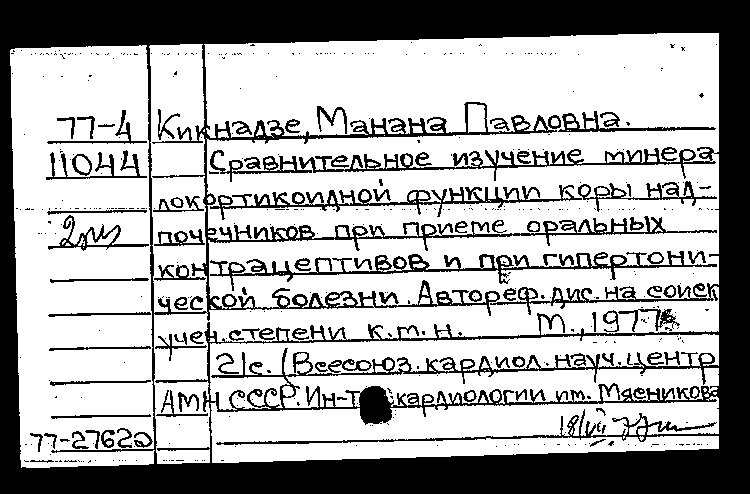 77-4 Кикнадзе, Манана Павловна.
11044 Сравнительное изучение минера
локортикоидной функции коры над-
2экз почечников при приеме оральных
контрацептивов и при гипертони-
ческой болезни. Автореф. дис. на соиск
учен. степени к.м.н. М., 1977
21с. (Всесоюз. кардиол. науч. центр
АМН СССР. Ин-т кардиологии им. Мясникова
18/VII
77-27620